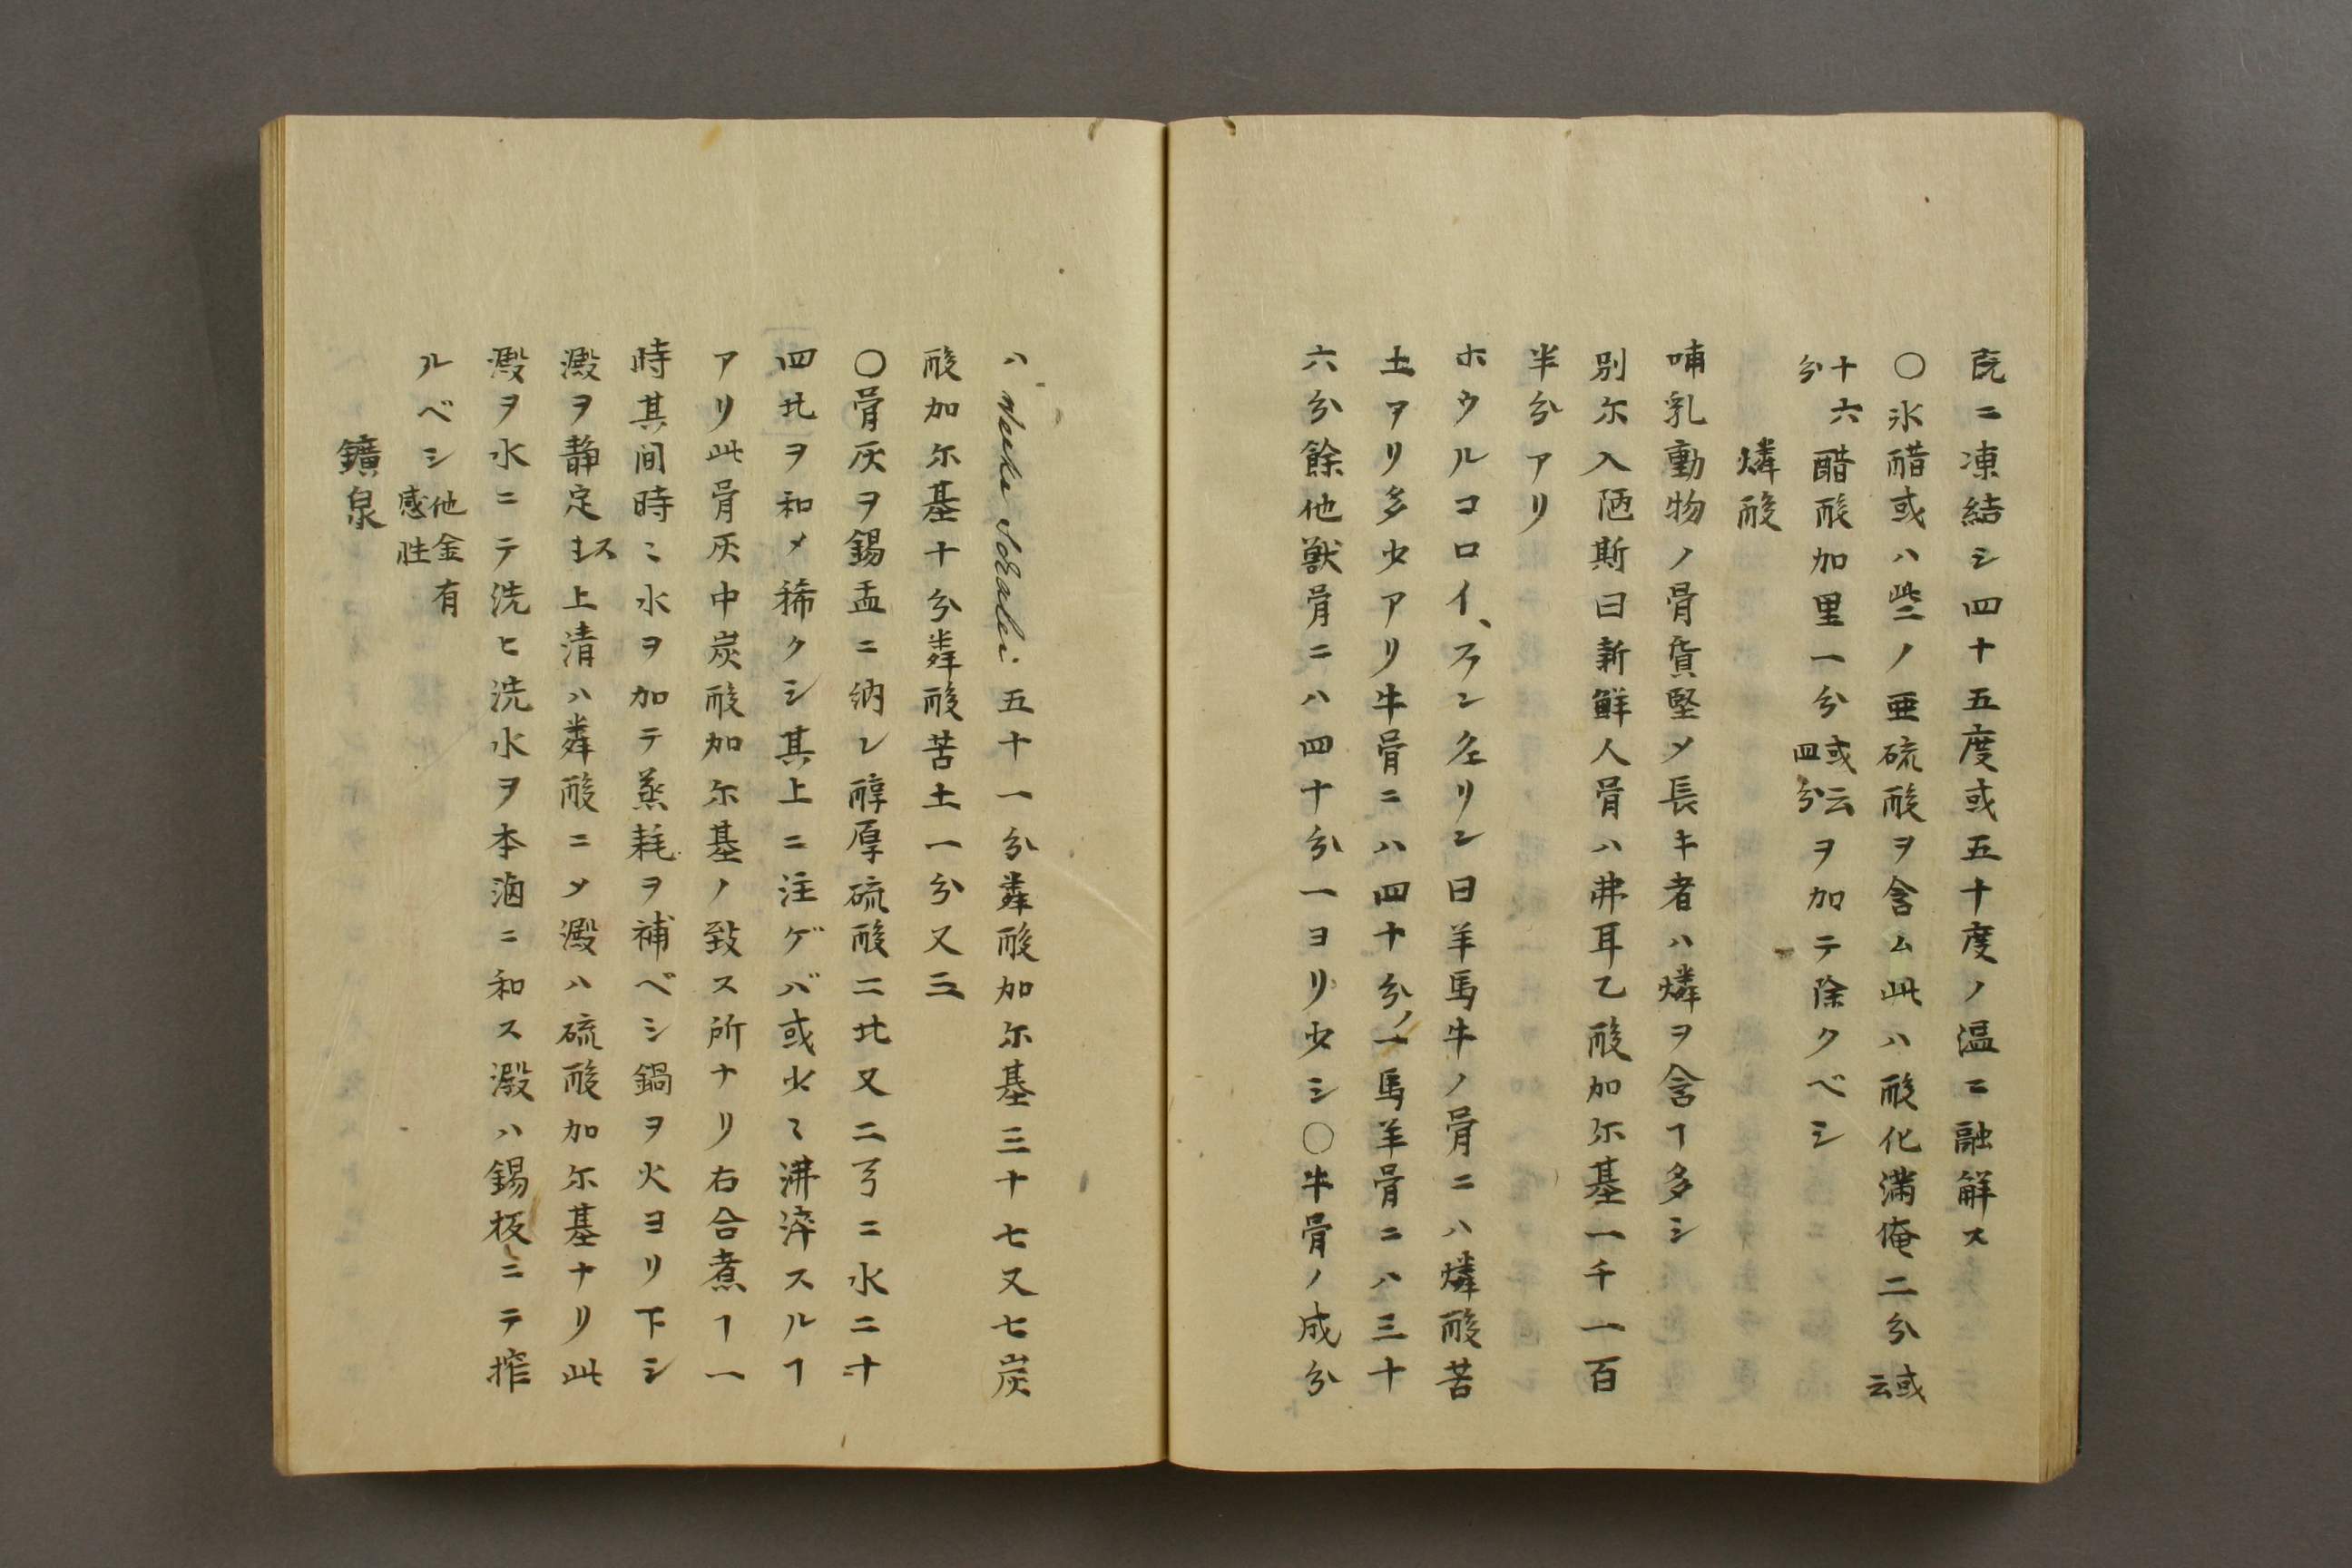 既ニ凍結シ四十五度或五十度ノ温ニ融解ス
〇氷醋或ハ些ノ亜硫酸ヲ含ム此ハ酸化満俺二分或云
十六分醋酸加里一分或云四分ヲ加テ除クベシ
燐酸
哺乳動物ノ骨質堅メ長キ者ハ燐ヲ含ヿ多シ
別尔入陋斯曰新鮮人骨ハ弗耳乙酸加尔基一千一百
半分アリ
ホウルコロイ、フアン左リン曰羊馬牛ノ骨ニハ燐酸苦
土アリ多少アリ牛骨ニハ四十分ノ一馬羊骨ニハ三十
六分餘他獣骨ニハ四十分一ヨリ少シ〇牛骨ノ成分
ハ 五十一分燐酸加尔基三十七又七炭
酸加尔基十分燐酸苦土一分又三
〇骨灰ヲ錫盂ニ納レ醇厚硫酸二比又二ニ水二十
四比ヲ和メ稀クシ其上ニ注ゲバ或少〻沸滓スルヿ
アリ此骨灰中炭酸加尔基ノ致ス所ナリ右合煮ヿ一
時其間時〻水ヲ加テ蒸耗ヲ補ベシ鍋ヲ火ヨリ下シ
澱ヲ静定ス上清ハ燐酸ニメ澱ハ硫酸加尔基ナリ此
澱ヲ水ニテ洗ヒ洗水ヲ本滷ニ和ス澱ハ錫板ニテ搾
ルベシ他金有感性
鑛泉